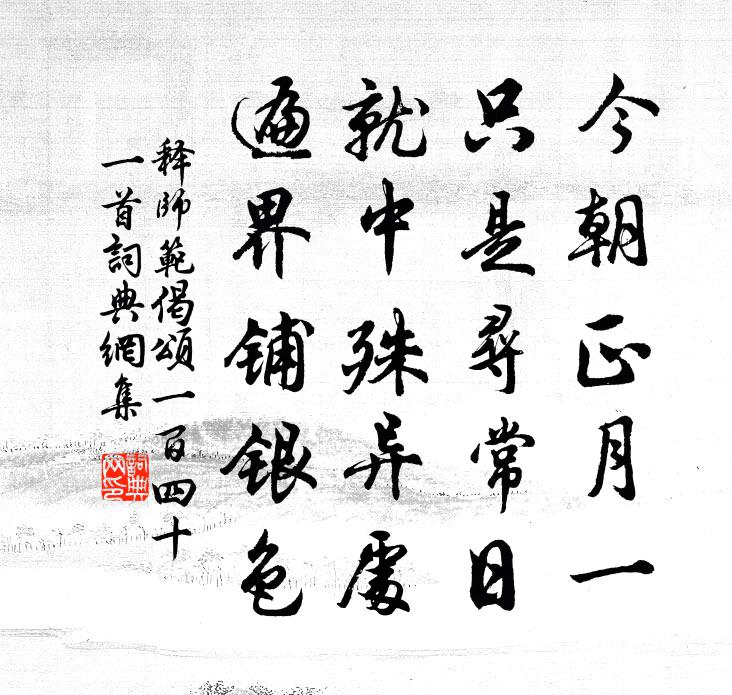 今朝正月一
只是尋常日
就中殊异處
遍界铺银色
释師範偈頌一百四十
一首詞典網集
詞典網印